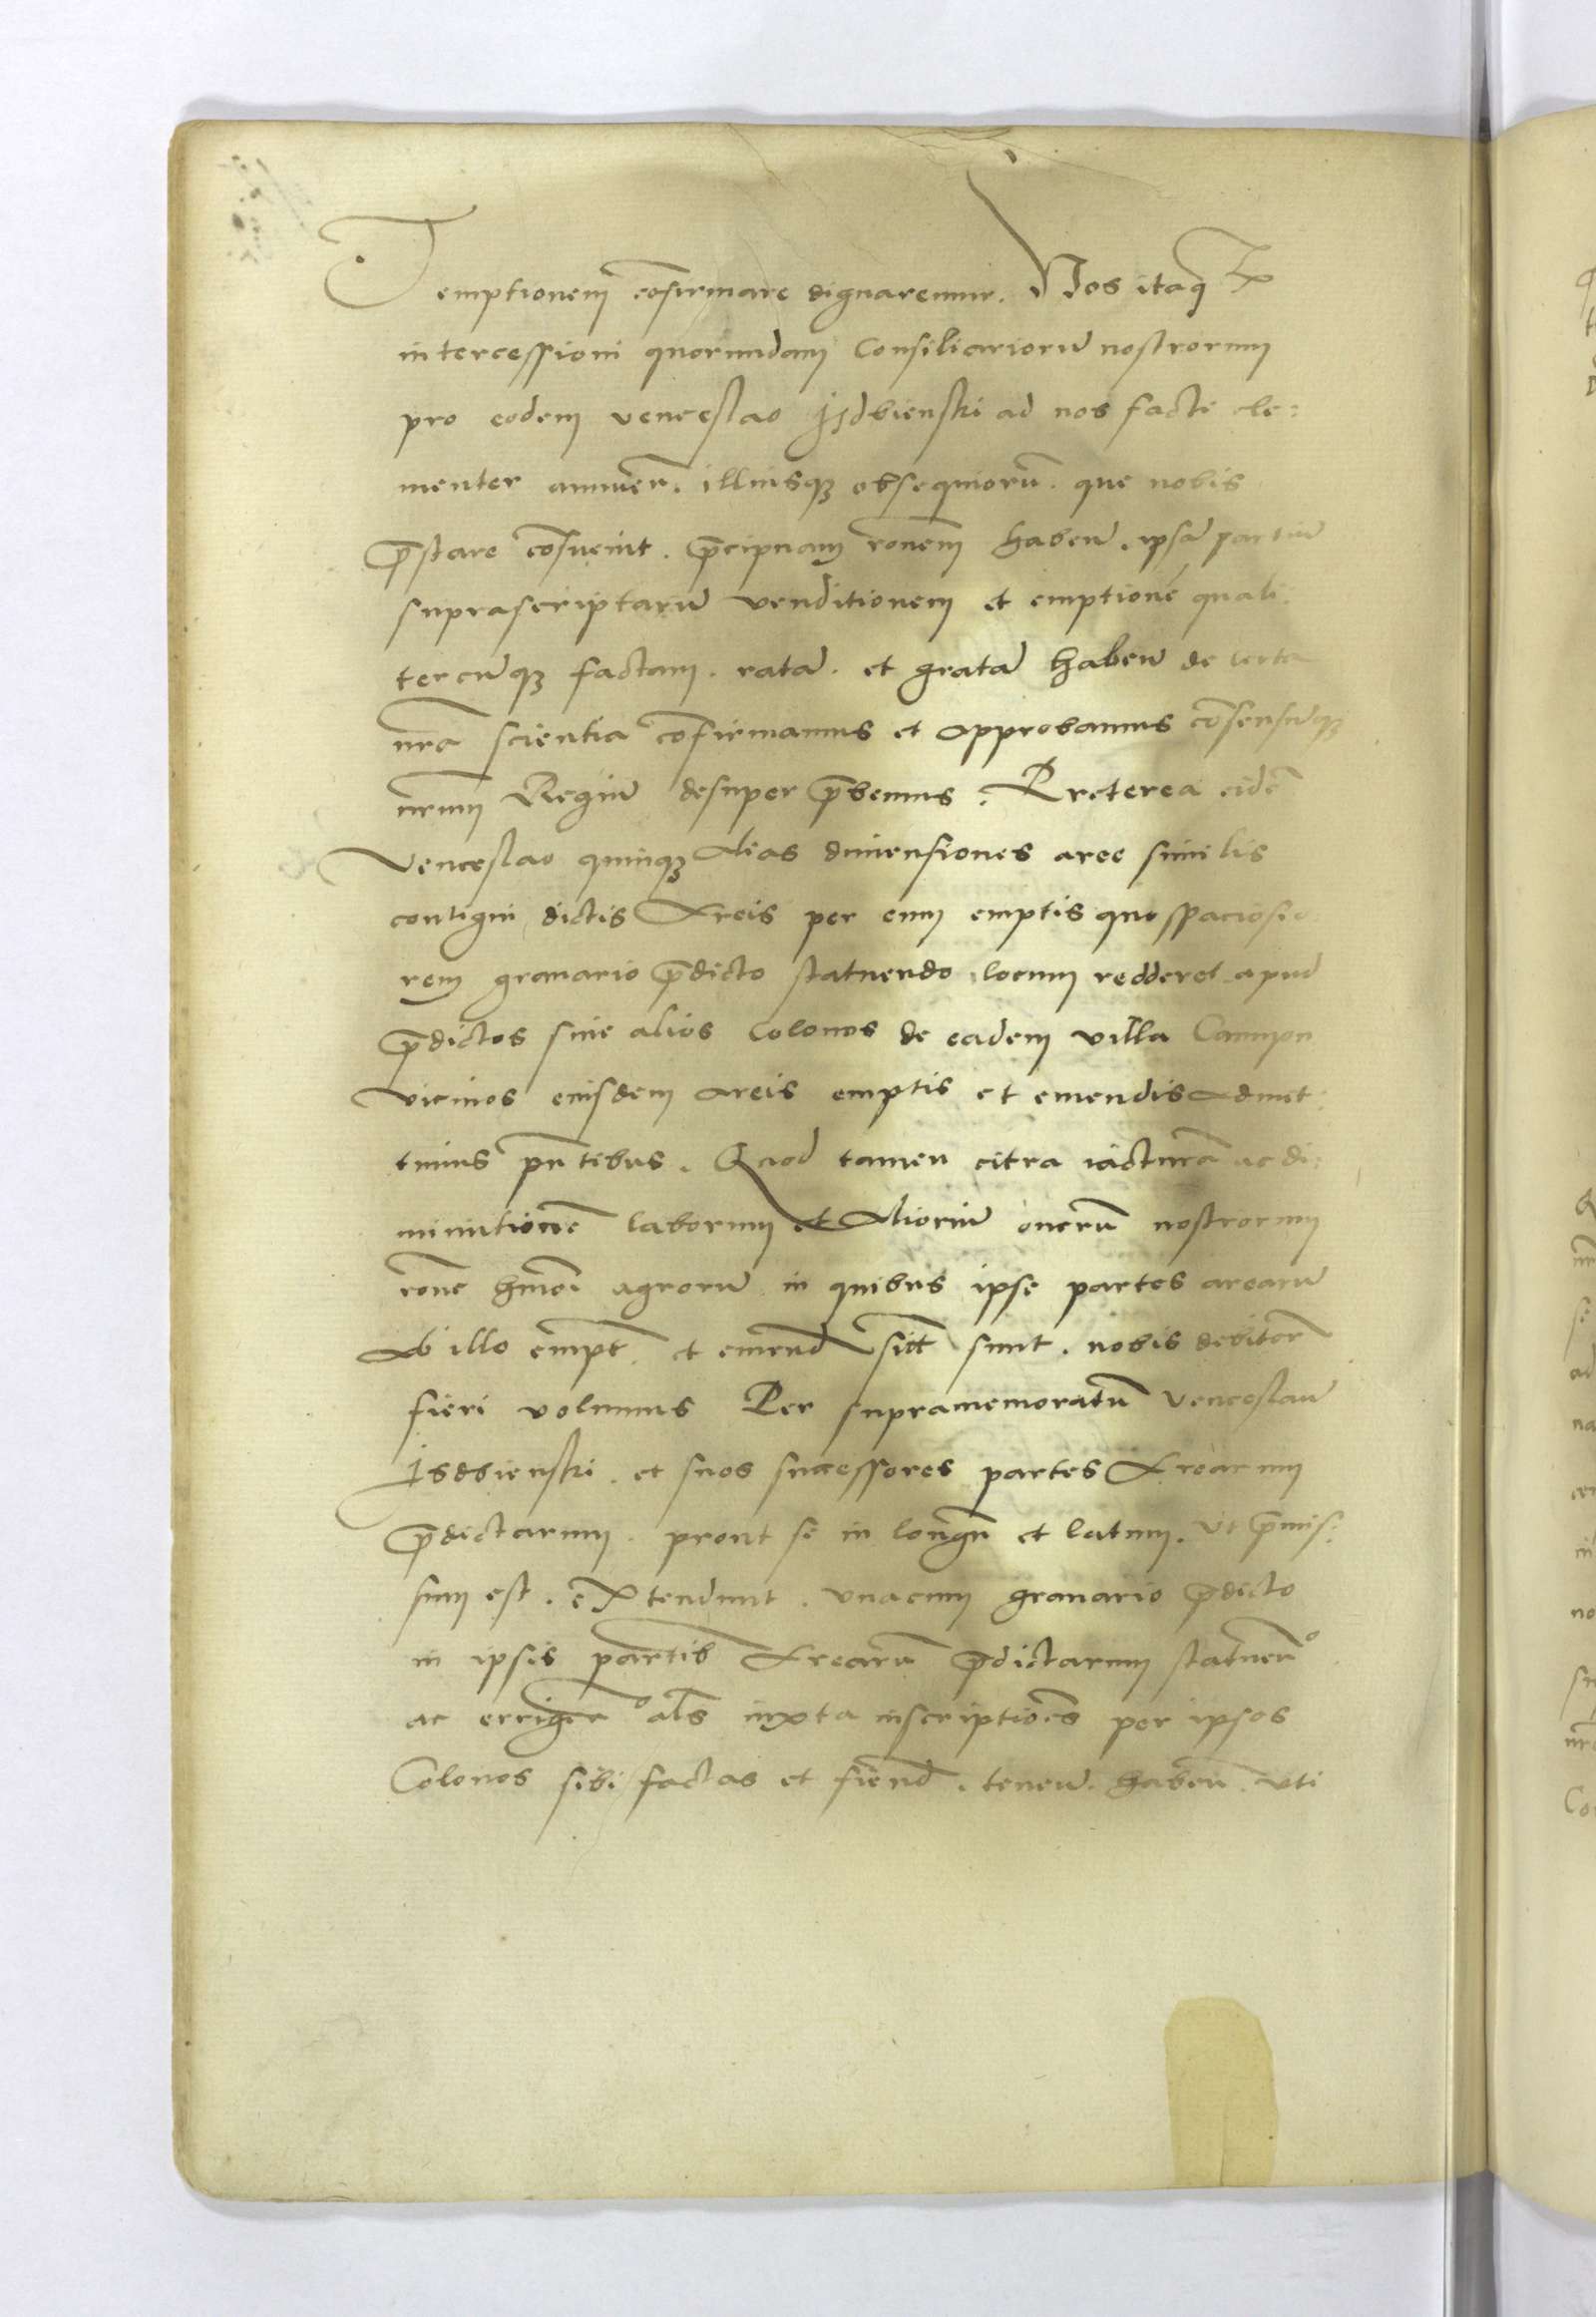 emptionem cōfirmare dignaremur. Nos itaq̄ Ex
intercessioni quorundam Consiliariorū nostrorum
pro eodem venceslao Isdbienski ad nos facte cle:
menter annuen̄. illiusq₃ obsequiorū. que nobis
p̄stare cōsueuit. p̄cipuam rōnem haben̄. ipsā partiū
suprascriptarū venditionem et emptionē quali:
tercūq₃ factam. ratā. et gratā haben̄ de certa
nr̄a scientia cōfirmamus et approbamus cōsensūq₃
nr̄um Regiū desuper p̄bemus. Preterea eidē
Venceslao quinq₃ alias dimensiones aree similis
contigui dictis Areis per eum emptis quo spaciosio
rem granario p̄dicto statuendo locum redderet apud
p̄dictos siue alios Colonos de eadem villa
vicinos eiusdem areis emptis et emendis admit:
timus pn̄tibus. Quod tamen citra iacturā ac di:
minutionē laborum et aliorū onerū nostrorum
rōne hmōi agrorū in quibus ipse partes arearū
ab illo empt̄. et emend̄ sitt̄ sunt. nobis debitorū
fieri volumus Per supramemoratū Venceslaū
Isdbienski. et suos successores partes Arearum
p̄dictarum. prout se in longū et latum. Ut p̄mis:
sum est. extendunt. vnacum granario p̄dicto
in ipsis partib̄ Arearū p̄dictarum statuen°
ac erigen° al̄s iuxta inscriptiōes per ipsos
Colonos sibi factas et fiend̄. tenen̄. haben̄. vti